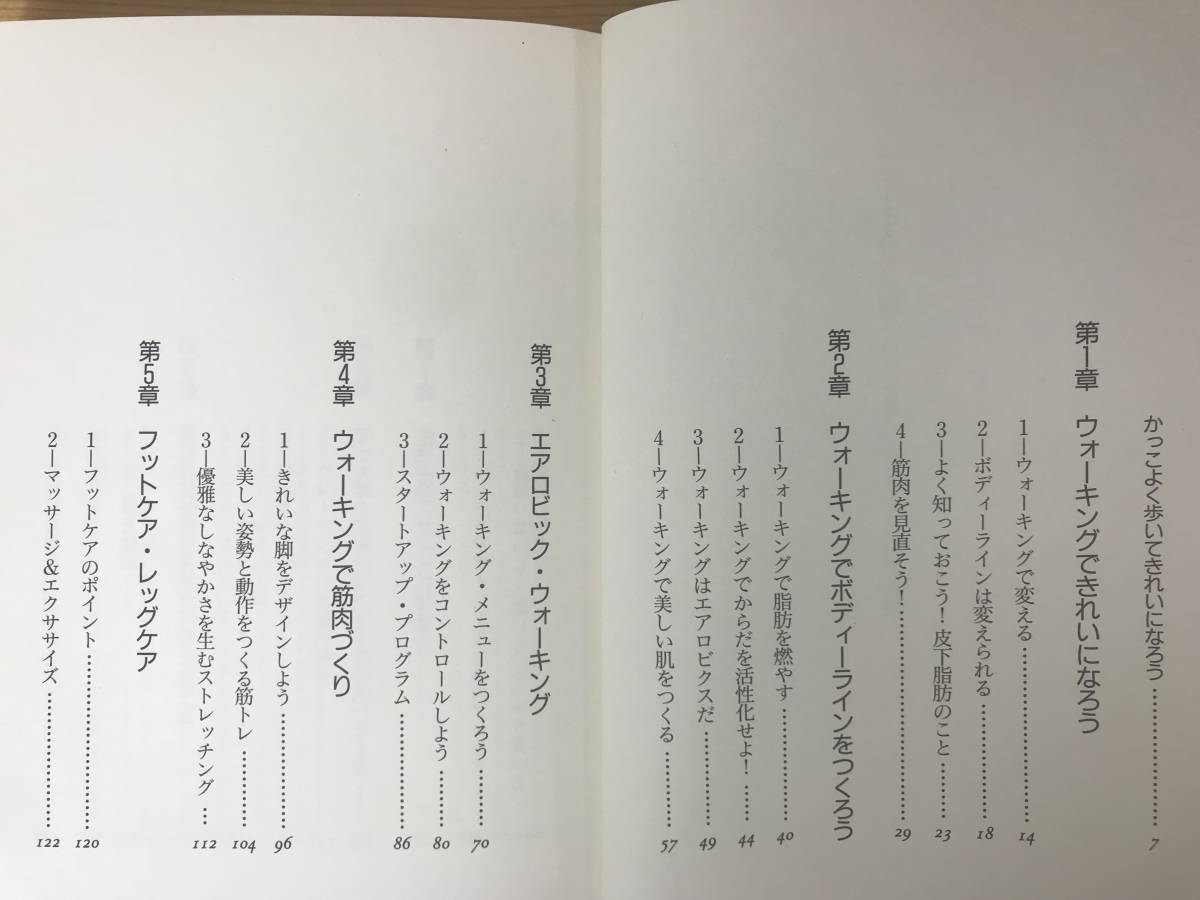 かっこよく歩いてきれいになろう………………7
第1章 ウォーキングできれいになろう
1―ウォーキングで変える………………14
2―ボディーラインは変えられる…………18
3―よく知っておこう！皮下脂肪のこと……23
4―筋肉を見直そう！………………29
第2章 ウォーキングでボディーラインをつくろう
1―ウォーキングで脂肪を燃やす…………40
2―ウォーキングでからだを活性化せよ！……44
3―ウォーキングはエアロビクスだ…………49
4―ウォーキングで美しい肌をつくる…………57
第3章 エアロビック・ウォーキング
1―ウォーキング・メニューをつくろう……70
2―ウォーキングをコントロールしよう……80
3―スタートアップ・プログラム…………86
第4章 ウォーキングで筋肉づくり
1―きれいな脚をデザインしよう…………96
2―美しい姿勢と動作をつくる筋トレ………104
3―優雅なしなやかさを生むストレッチング…112
第5章 フットケア・レッグケア
1―フットケアのポイント………………120
2―マッサージ＆エクササイズ……………122